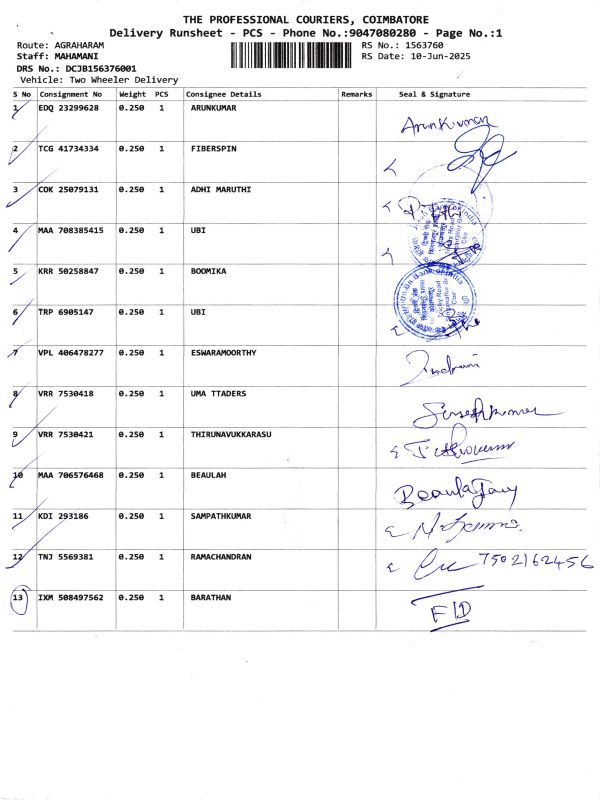 THE PROFESSIONAL COURIERS, COIMBATORE
Delivery Runsheet - PCS - Phone No.:9047080280 - Page No.:1
Route: AGRAHARAM RS No.: 1563760
Staff: MAHAMANI RS Date: 10-Jun-2025
DRS No.: DCJB156376001
Vehicle: Two Wheeler Delivery
S No Consignment No Weight PCS Consignee Details Remarks Seal & Signature
1 EDQ 23299628 0.250 1 ARUNKUMAR Arunkumar
2 TCG 41734334 0.250 1 FIBERSPIN
3 COK 25079131 0.250 1 ADHI MARUTHI
4 MAA 708385415 0.250 1 UBI
5 KRR 50258847 0.250 1 BOOMIKA
6 TRP 6905147 0.250 1 UBI
7 VPL 406478277 0.250 1 ESWARAMOORTHY
8 VRR 7530418 0.250 1 UMA TTADERS Sureshkumar
9 VRR 7530421 0.250 1 THIRUNAVUKKARASU
10 MAA 706576468 0.250 1 BEAULAH
11 KDI 293186 0.250 1 SAMPATHKUMAR
12 TNJ 5569381 0.250 1 RAMACHANDRAN 7502162456
13 IXM 508497562 0.250 1 BARATHAN